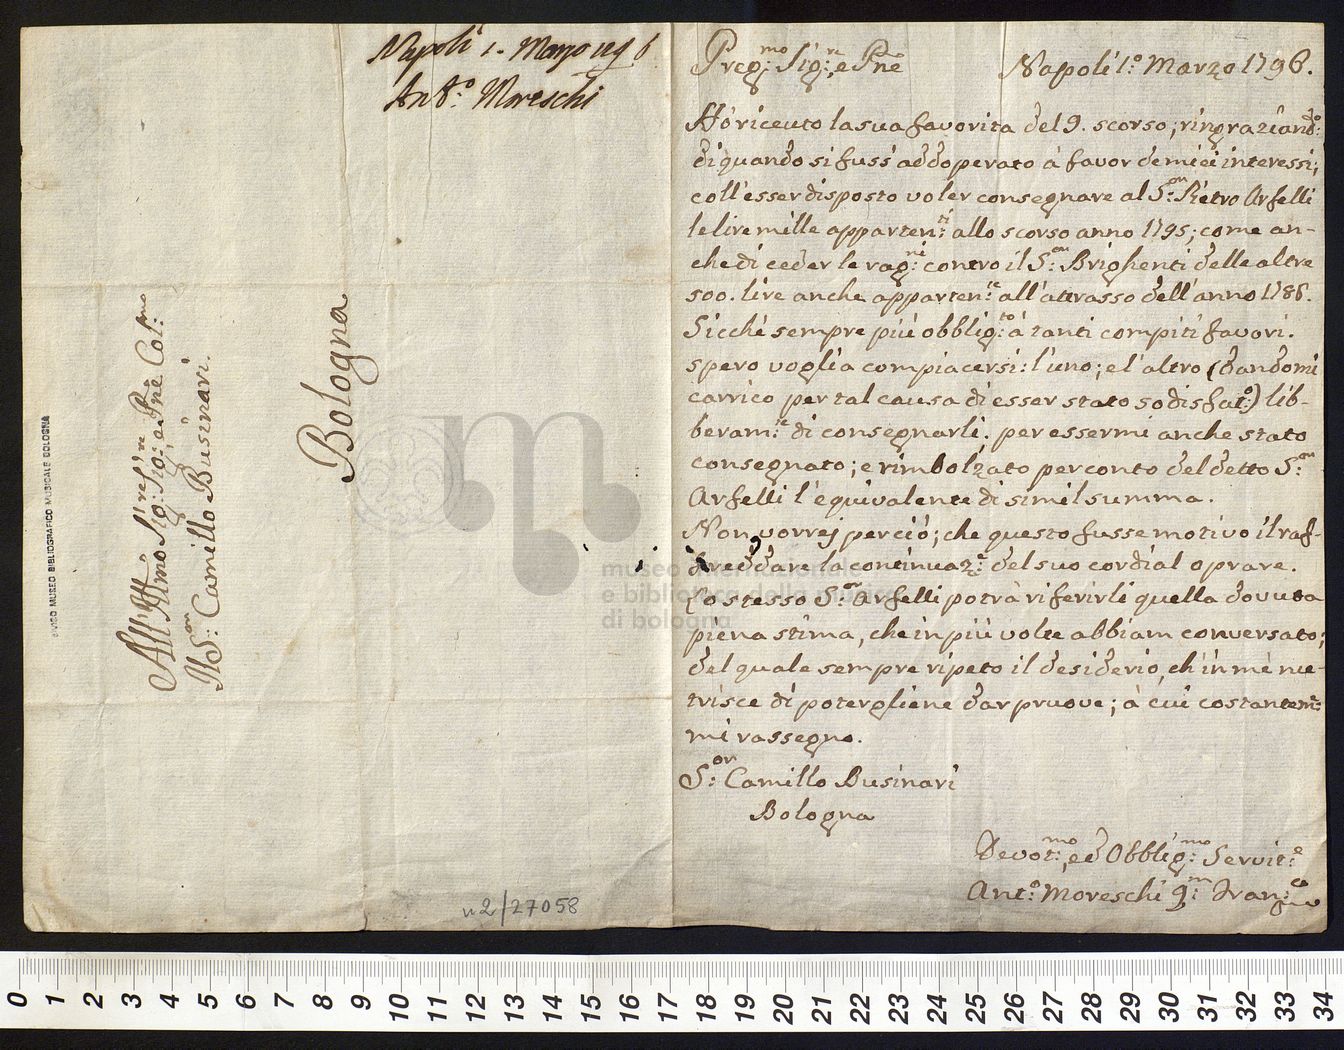 Napoli 1. Marzo 1796
Ant.o Moreschi
All'Ill'mo Sig: Sig:re e P'ne Col:mo
Il S:on Camillo Businari.
Bologna
museo internazionale
e biblioteca della musica
di bologna
MUSEO BIBLIOGRAFICO MUSICALE BOLOGNA
n2/27058
Preg:mo Sig:re, e P'ne
Napoli 1:o Marzo 1796.
Hò riceuto la sua favorita del 9. scorso; ringraziand:o
di quando si fuss' addoperato à favor de miei interessi;
coll'esser disposto voler consegnare al S:on Pietro Arfelli
le lire mille apparten:ti allo scorso anno 1795; come an-
che di ceder le rag:ni contro il S:on Brighenti delle altre
500. lire anche apparten:te all'attrasso dell'anno 1786.
Sicchè sempre più obblig:to à tanti compiti favori.
spero voglia compiacersi: l'uno; e l'altro (dandomi
carrico per tal causa di esser stato sodisfat:o) lib-
beram:te di consegnarli; per essermi anche stato
consegnato; e rimbolzato per conto del detto S:on
Arfelli l'equivalente di simil summa.
Non vorrej perciò; che questo fusse motivo il raf-
freddare la continuaz:e del suo cordial oprare.
Lo stesso S:on Arfelli potrà riferirli quella dovuta
piena stima, che in più volte abbiam conversato;
del quale sempre ripeto il desiderio, ch'in mè nu-
trisce di potergliene dar pruove; à cui costantem:te
mi rassegno.
S:on Camillo Businari
Bologna
Devot:mo, ed Obblig:mo Servit:e
Ant:o Moreschi q:m Fran:co
0 1 2 3 4 5 6 7 8 9 10 11 12 13 14 15 16 17 18 19 20 21 22 23 24 25 26 27 28 29 30 31 32 33 34